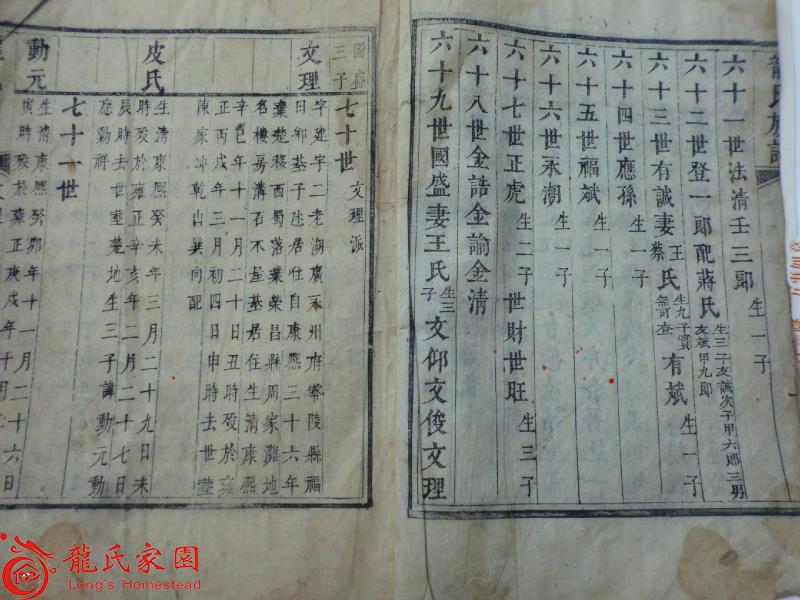 龍氏族譜
六十一世法清壬三郎生一子
六十二世登一郎配蔣氏生三子友誠次子甲六郎三男友斌甲九郎
六十三世有誠妻王蔡氏生九子實無可查有斌生一子
六十四世應孫生一子
六十五世福斌生一子
六十六世永潮生一子
六十七世正虎生二子世財世旺生三子
六十八世金誥金諭金清
六十九世國盛妻王氏生三子文仰文俊文理
國盛三子
文理
七十世文理派
字建宇二老湖廣永州府零陵縣福
田鄉基子
居住自康熙三十六年
棄楚移西蜀落業榮昌縣周家灘地
名樓房溝石不屋基居住生清康熙
辛巳年十一月二十日丑時歿於雍
正丙戌年三月初四日申時去世塟
陳家沖乾山巽向配
皮氏
生清康熙癸未年三月二十九日未
時歿於雍正辛亥年二月二十七日
辰時去世塟楚地生三子諱動元動
應動祥
七十一世
動元
生清康熙癸卯年十一月二十六日
寅時歿於雍正庚戌年十月
龍氏家園
Long's Homestead